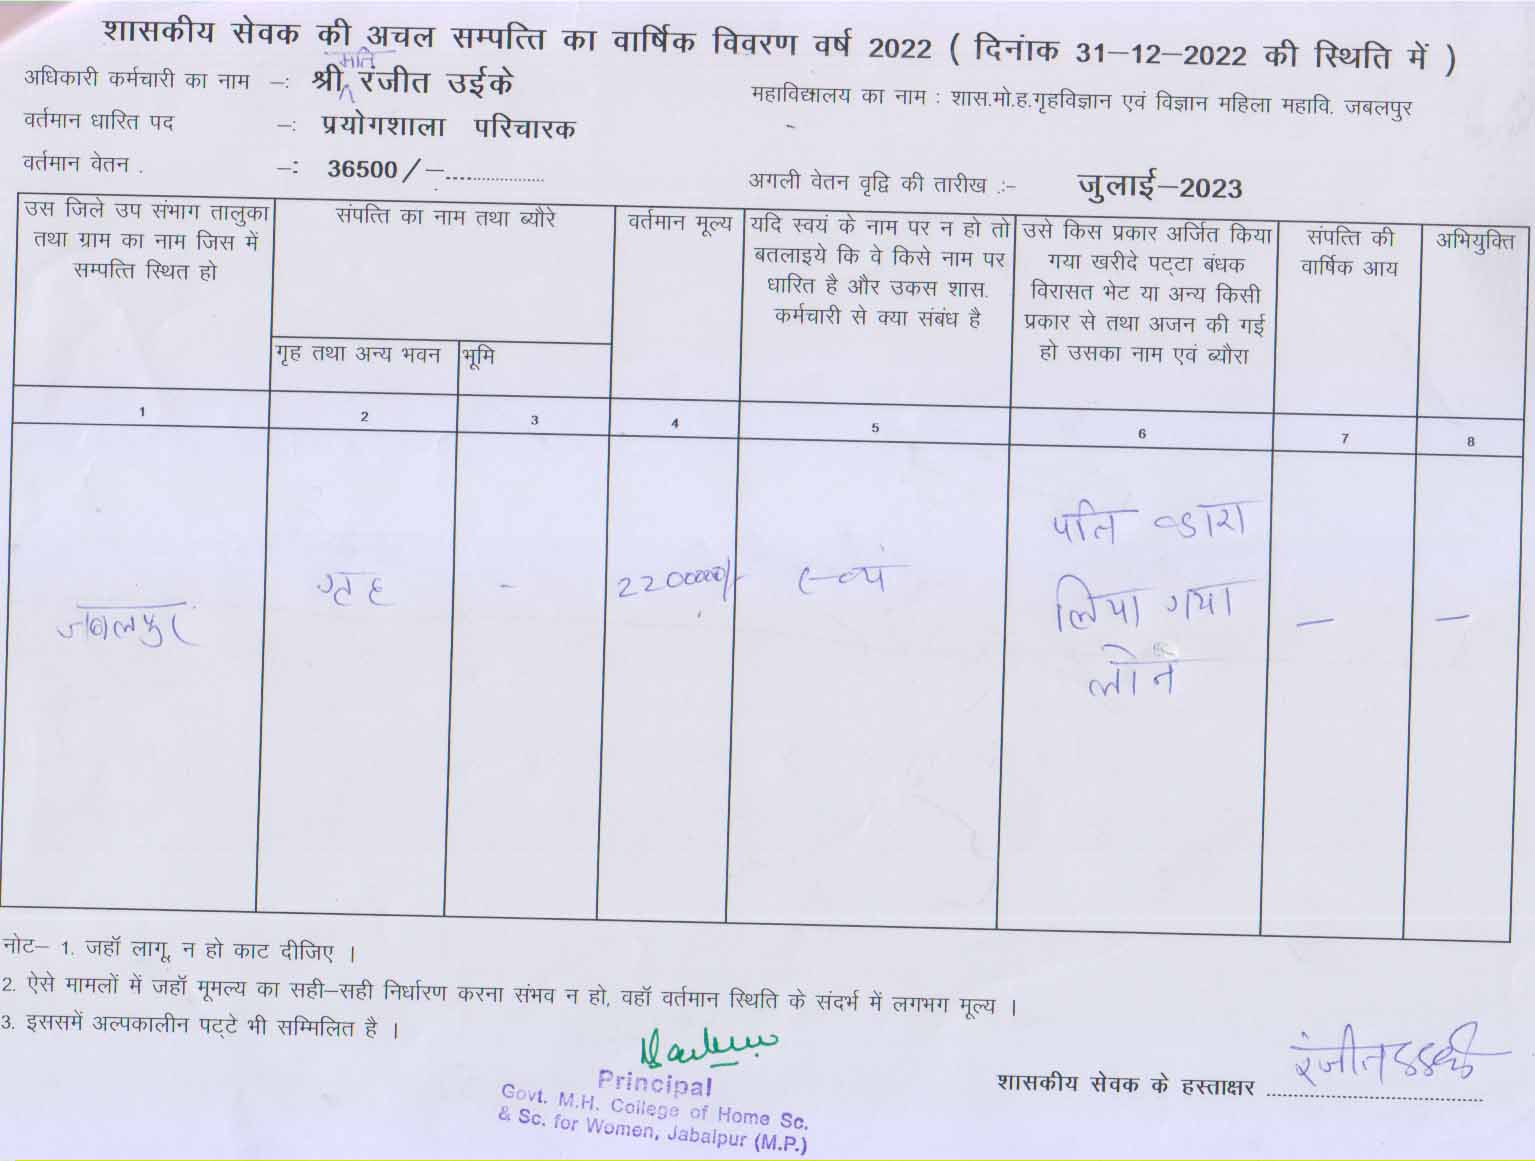 शासकीय सेवक की अचल सम्पत्ति का वार्षिक विवरण वर्ष 2022 ( दिनांक 31–12–2022 की स्थिति में )
अधिकारी कर्मचारी का नाम –: श्रीमति रंजीत उईके
महाविद्यालय का नाम : शास.मो.ह.गृहविज्ञान एवं विज्ञान महिला महावि. जबलपुर
वर्तमान धारित पद –: प्रयोगशाला परिचारक –
वर्तमान वेतन . –: 36500/–..................
अगली वेतन वृद्वि की तारीख .:– जुलाई–2023
उस जिले उप संभाग तालुका
तथा ग्राम का नाम जिस में
सम्पत्ति स्थित हो
संपत्ति का नाम तथा ब्यौरे
गृह तथा अन्य भवन
भूमि
वर्तमान मूल्य
यदि स्वयं के नाम पर न हो तो
बतलाइये कि वे किसे नाम पर
धारित है और उकस शास.
कर्मचारी से क्या संबंध है
उसे किस प्रकार अर्जित किया
गया खरीदे पट्टा बंधक
विरासत भेट या अन्य किसी
प्रकार से तथा अजन की गई
हो उसका नाम एवं ब्यौरा
संपत्ति की
वार्षिक आय
अभियुक्ति
1 2 3 4 5 6 7 8
जबलपुर
गृह
–
2200000/-
स्वयं
पति व्दारा
लिया गया
लोन
–
–
नोट– 1. जहॉ लागू, न हो काट दीजिए ।
2. ऐसे मामलों में जहॉ मूमल्य का सही–सही निर्धारण करना संभव न हो, वहॉ वर्तमान स्थिति के संदर्भ में लगभग मूल्य ।
3. इससमें अल्पकालीन पट्टे भी सम्मिलित है ।
Principal
Govt. M.H. College of Home Sc.
& Sc. for Women, Jabalpur (M.P.)
शासकीय सेवक के हस्ताक्षर ........................ रंजीत उइके